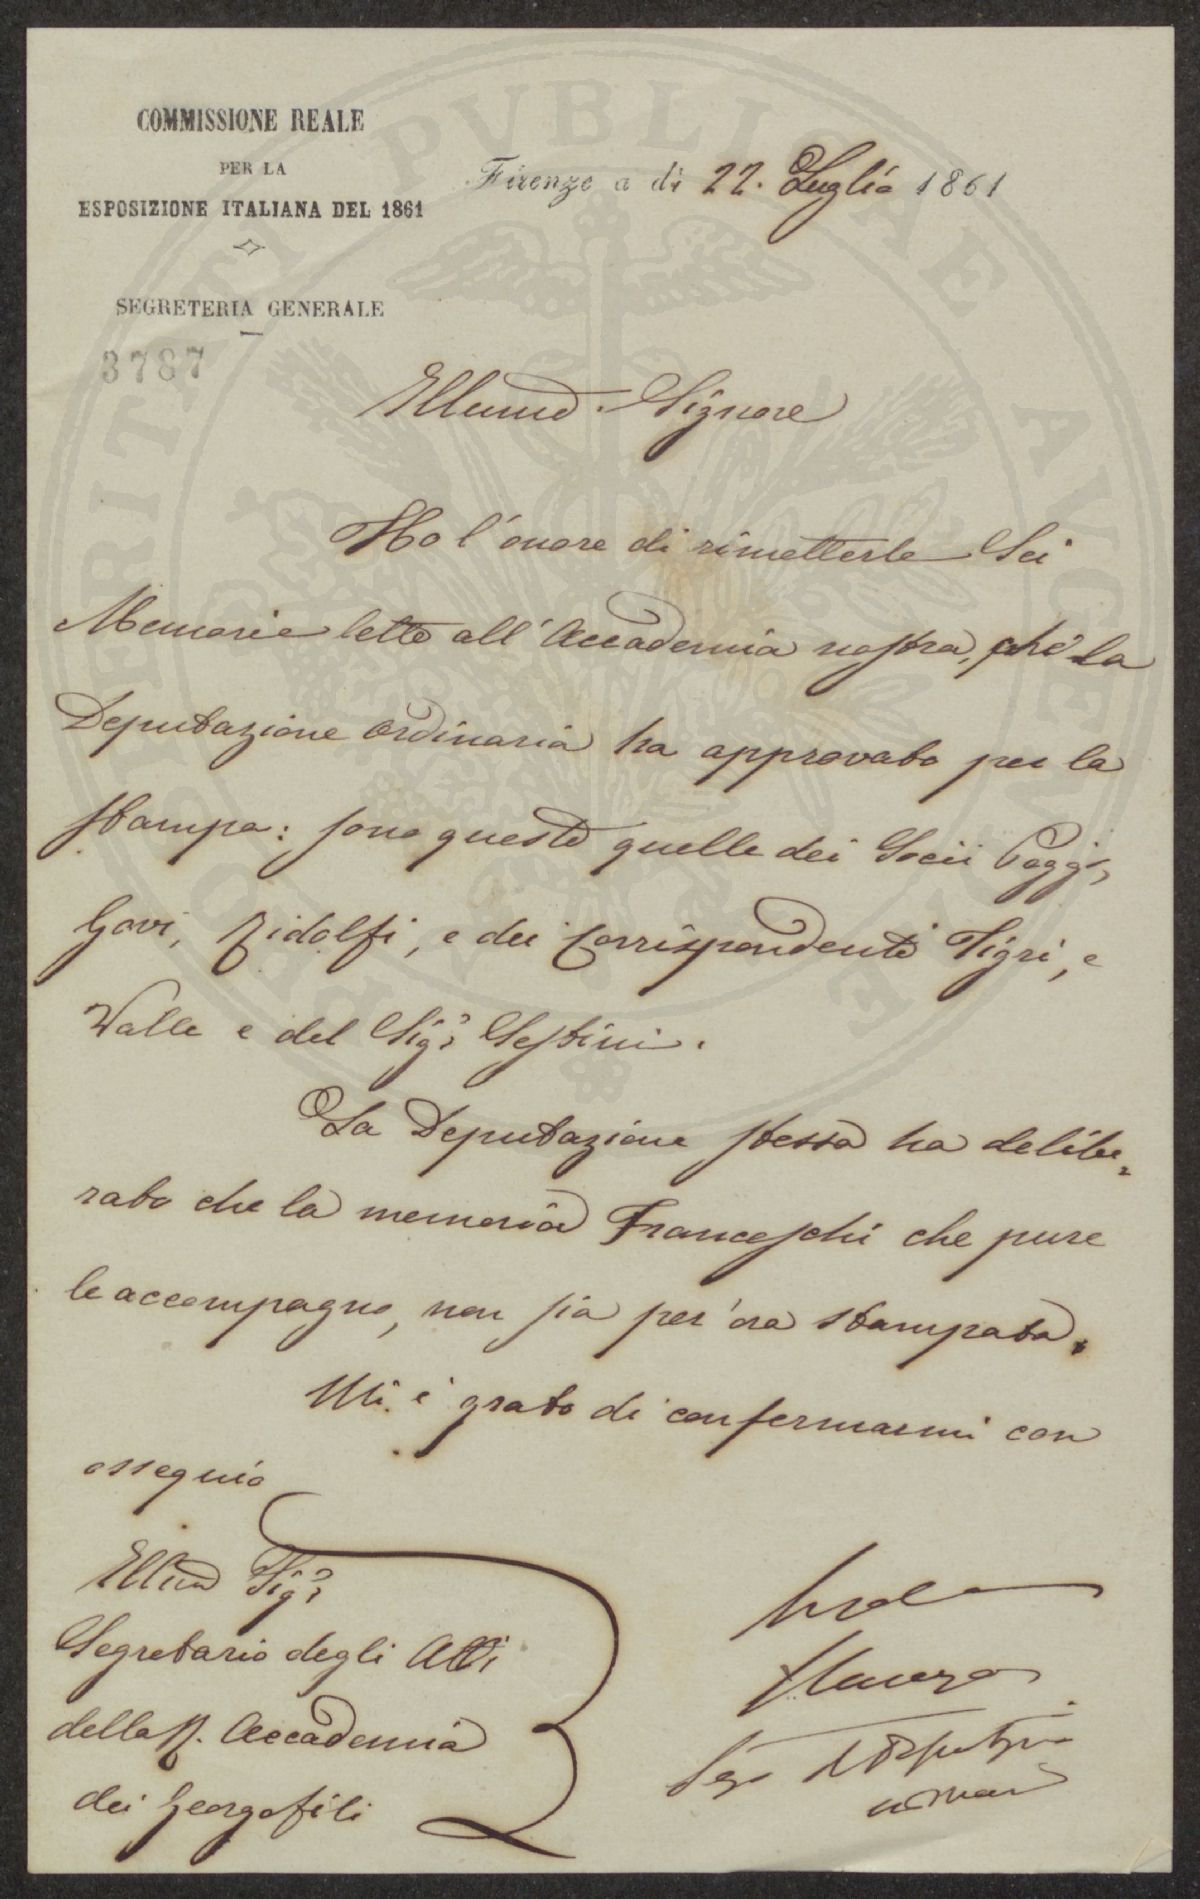 COMMISSIONE REALE
PER LA
ESPOSIZIONE ITALIANA DEL 1861
SEGRETERIA GENERALE
3787
Firenze a dì 22. Luglio 1861
Illumo. Signore
Ho l'onore di rimetterle Sei
Memorie lette all'Accademia nostra, che la
Deputazione ordinaria ha approvato per la
stampa: sono queste quelle dei Socii Poggi,
Govi, Ridolfi, e dei Corrispondenti Tigri, e
Valle e del Sigr Sestini.
La Deputazione stessa ha delibe=
rato che la memoria Franceschi che pure
le accompagno, non sia per'ora stampata.
Mi è grato di confermarmi con
ossequio
Illmo Sigr
Segretario degli Atti
della R. Accademia
dei Georgofili